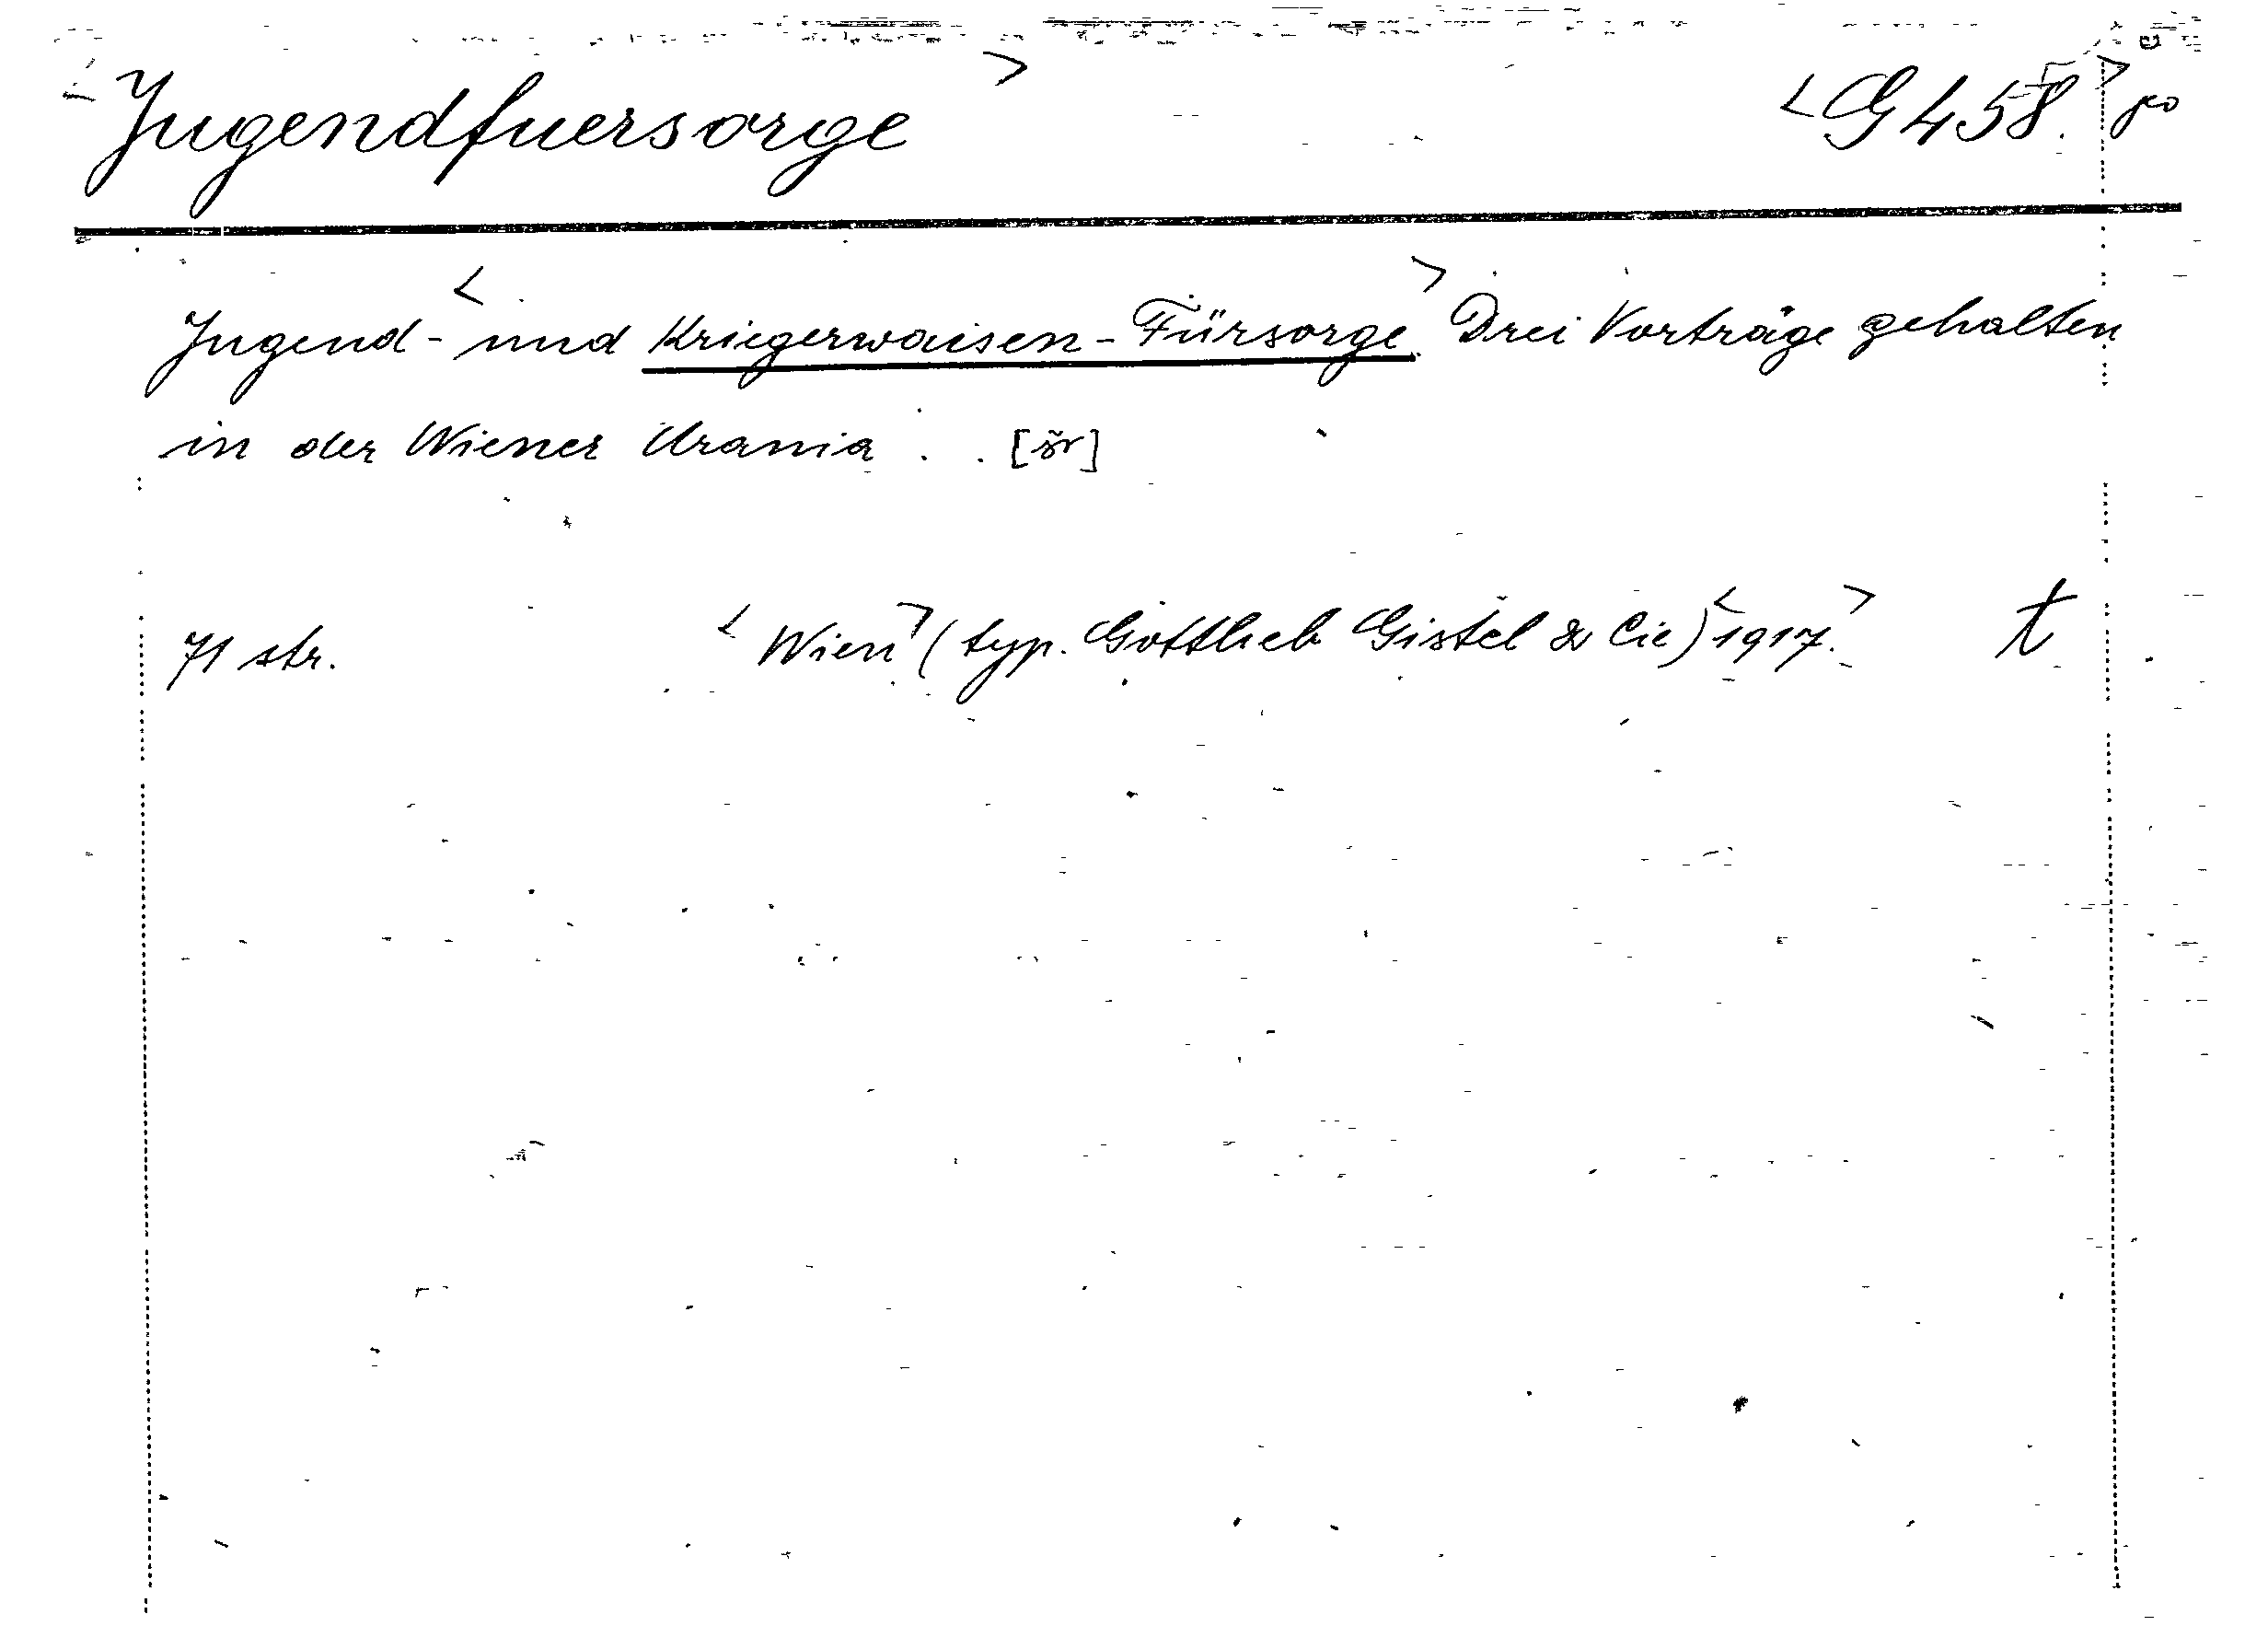 Jugendfuersorge > <G 458.>
Jugend-<und Kriegerwaisen-Fürsorge.> Drei Vorträge gehalten
in der Wiener Urania . . [šr]
71 str. <Wien> (typ. Gottlieb Gistel & Cie) <1917.> t